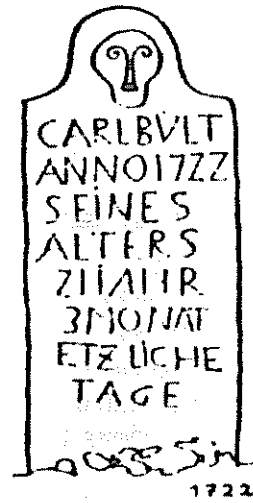 CARL BVLT
ANNO 1722
SEINES
ALTERS
JAHR
3 MONAT
ETZLICHE
TAGE
1722